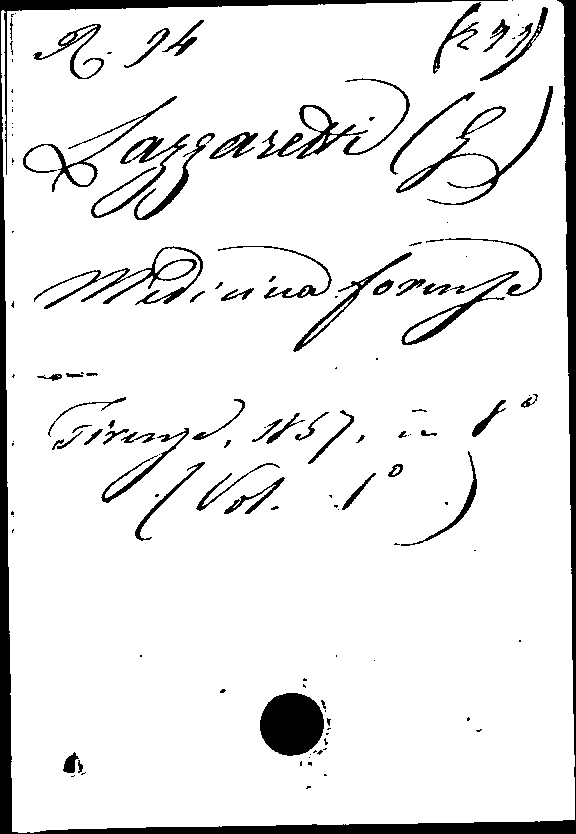 R. 94 (277)
Lazzaretti (G)
Medicina forense
Firenze, 1857, in 8°
(Vol. 1°)